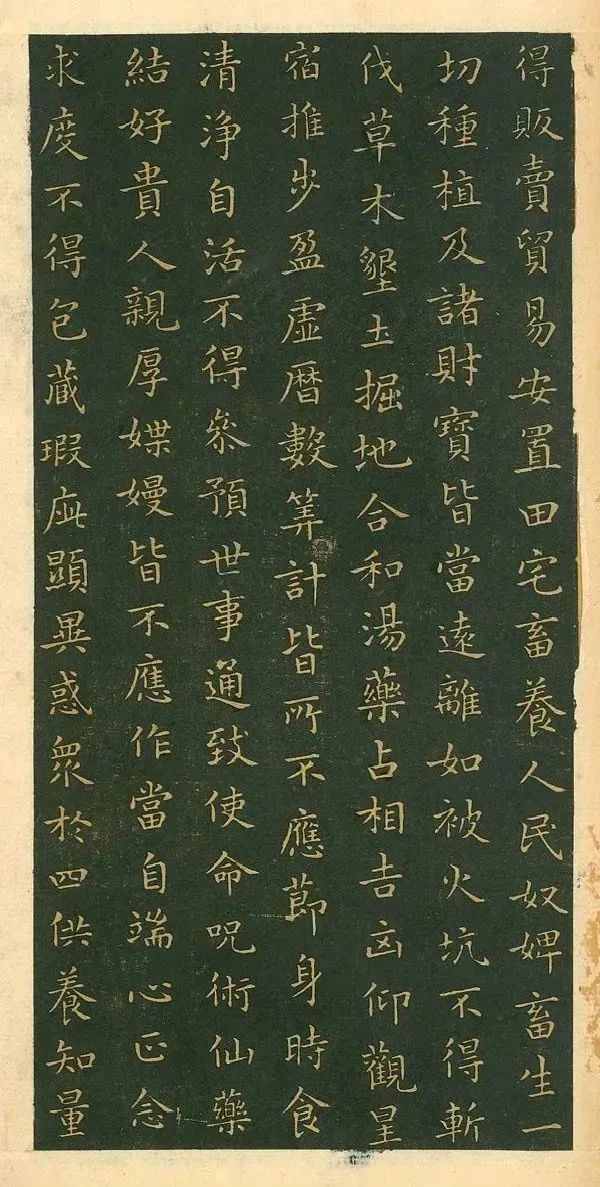 得販賣貿易安置田宅畜養人民奴婢畜生一
切種植及諸財寶皆當遠離如被火坑不得斬
伐草木墾土掘地合和湯藥占相吉凶仰觀星
宿推步盈虛曆數筭計皆所不應節身時食
清淨自活不得叅預世事通致使命呪術仙藥
結好貴人親厚媟嫚皆不應作當自端心正念
求度不得包藏瑕疵顯異惑眾於四供養知量